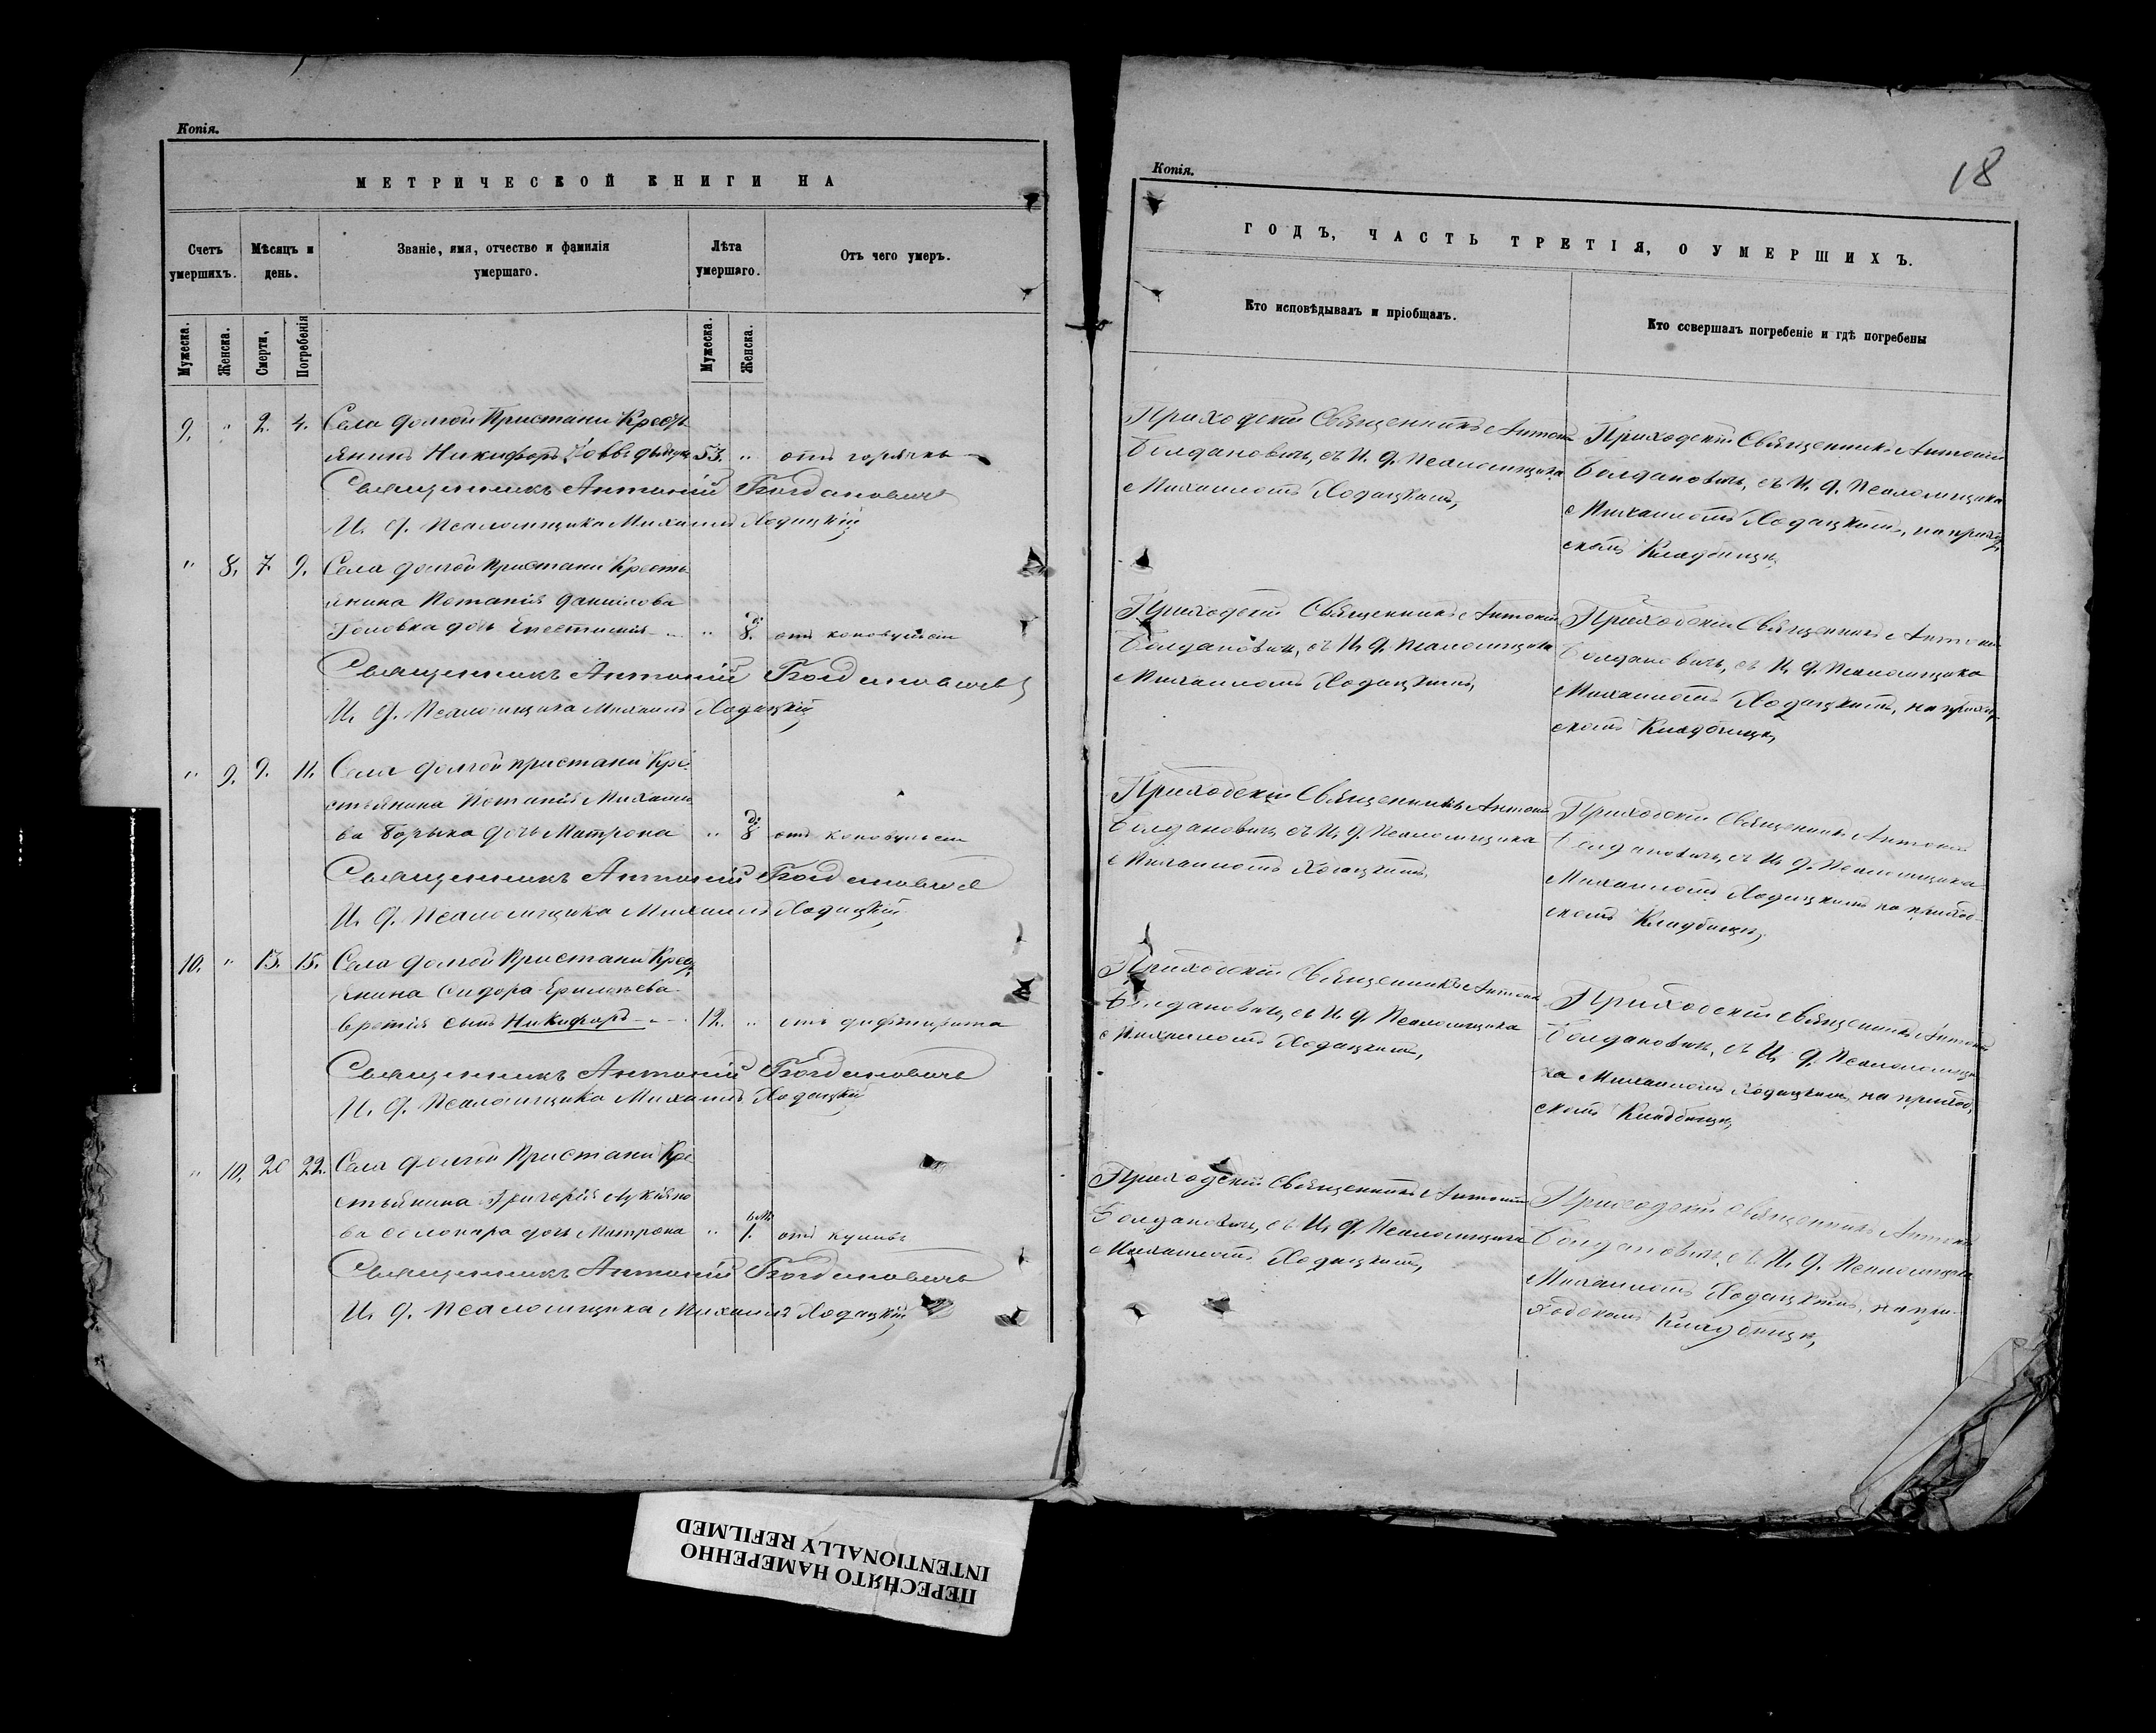 Копія.
МЕТРИЧЕСКОЙ КНИГИ НА
Счетъ умершихъ.
Мѣсяцъ и день.
Званіе, имя, отчество и фамилія умершаго.
Лѣта умершаго.
Отъ чего умеръ.
Мужеска.
Женска.
Смерти,
Погребенія
Мужеска.
Женска.
9. " 2. 4. Села Долгой Пристани Крест
янинъ Никифоръ 53. " отъ горячки
Священникъ Антоній Богдановичъ
И. д. Псаломщика Михаилъ Ходацкій,
" 8. 7. 9. Села Долгой Пристани Кресть
янина Потапія Данилова
Головка дочь " 8. отъ конвульсіи
Священникъ Антоній Богдановичъ
И. д. Псаломщика Михаилъ Ходацкій,
" 9. 9. 11. Села Долгой пристани Кре
стьянина Потапія Михаило
ва дочь Матрона " 8 отъ конвульсіи
Священникъ Антоній Богдановичъ
И. д. Псаломщика Михаилъ Ходацкій,
10. " 13. 15. Села Долгой Пристани Крест
янина Сидора
сынъ Никифоръ 12. " отъ дифтирита
Священникъ Антоній Богдановичъ
И. д. Псаломщика Михаилъ Ходацкій
" 10. 20 22. Села Долгой Пристани Кре
стьянина Григорія Лукіяно
ва дочь Матрона " 1. отъ
Священникъ Антоній Богдановичъ
И. д. Псаломщика Михаилъ Ходацкій
Копія.
18
ГОДЪ, ЧАСТЬ ТРЕТІЯ, О УМЕРШИХЪ.
Кто исповѣдывалъ и пріобщалъ.
Кто совершалъ погребеніе и гдѣ погребены
Приходскій Священникъ Антоній
Богдановичъ, съ И. д. Псаломщика
Михаиломъ Ходацкимъ,
Приходскій Священникъ Антоній
Богдановичъ, съ И. д. Псаломщика
Михаиломъ Ходацкимъ, на приход
скомъ Кладбищѣ,
Приходскій Священникъ Антоній
Богдановичъ, съ И. д. Псаломщика
Михаиломъ Ходацкимъ,
Приходскій Священникъ Антоній
Богдановичъ, съ И. д. Псаломщика
Михаиломъ Ходацкимъ, на приход
скомъ Кладбищѣ,
Приходскій Священникъ Антоній
Богдановичъ, съ И. д. Псаломщика
Михаиломъ Ходацкимъ,
Приходскій Священникъ Антоній
Богдановичъ, съ И. д. Псаломщика
Михаиломъ Ходацкимъ на приход-
скомъ Кладбищѣ,
Приходскій Священникъ Антоній
Богдановичъ, съ И. д. Псаломщика
Михаиломъ Ходацкимъ,
Приходскій Священникъ Антоній
Богдановичъ, съ И. д. Псаломщи
ка Михаиломъ Ходацкимъ, на приход
скомъ Кладбищѣ,
Приходскій Священникъ Антоній
Богдановичъ, съ И. д. Псаломщика
Михаиломъ Ходацкимъ,
Приходскій Священникъ Антоній
Богдановичъ, съ И. д. Псаломщика
Михаиломъ Ходацкимъ, на при-
ходскомъ Кладбищѣ,
ПЕРЕСНЯТО НАМЕРЕННО
INTENTIONALLY REFILMED